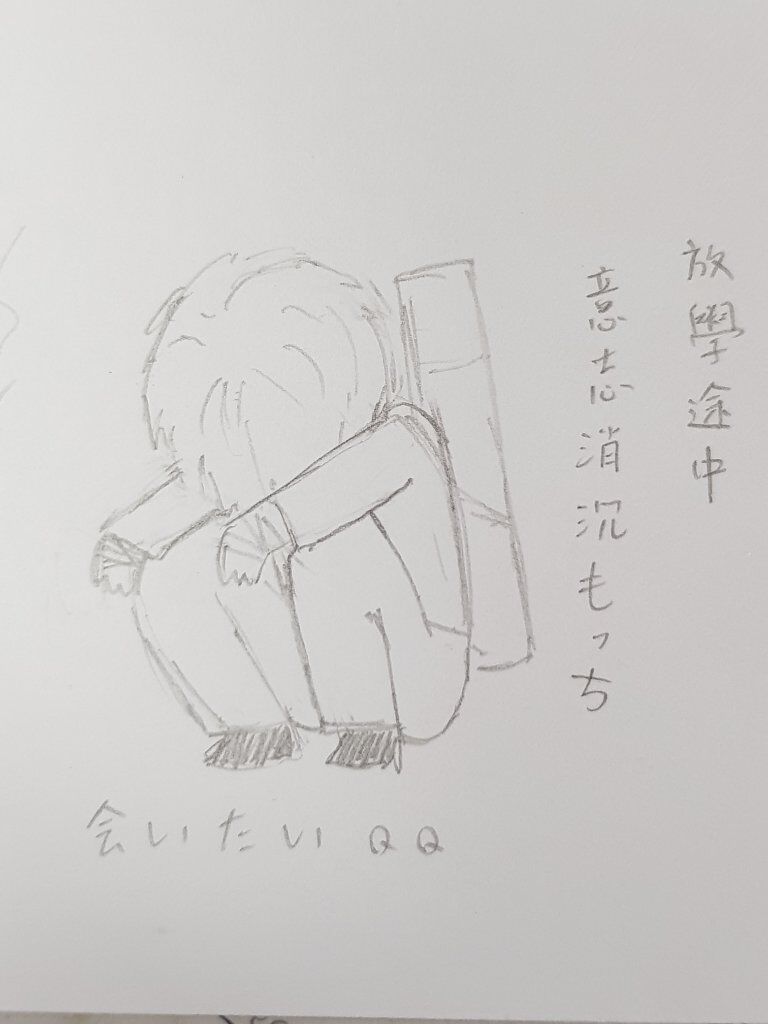 放學途中
意志消沉もっち
会いたいQQ